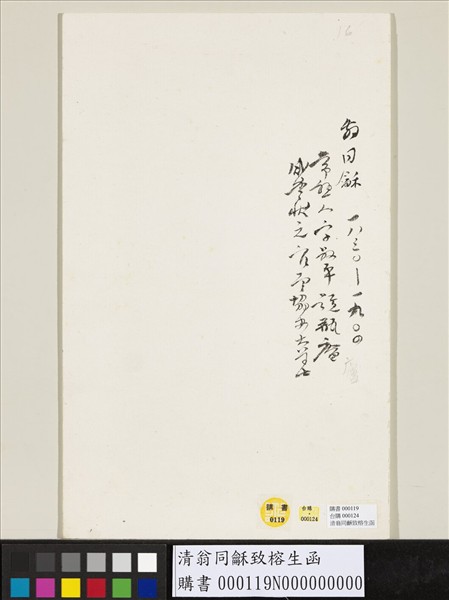 16
翁同龢 一八三〇—一九〇四
常熟人字叔平號瓶廬
咸豐狀元官至協辦大學士
購書
0119
台購
000124
購書 000119
台購 000124
清翁同龢致榕生函
清翁同龢致榕生函
購書 000119N000000000